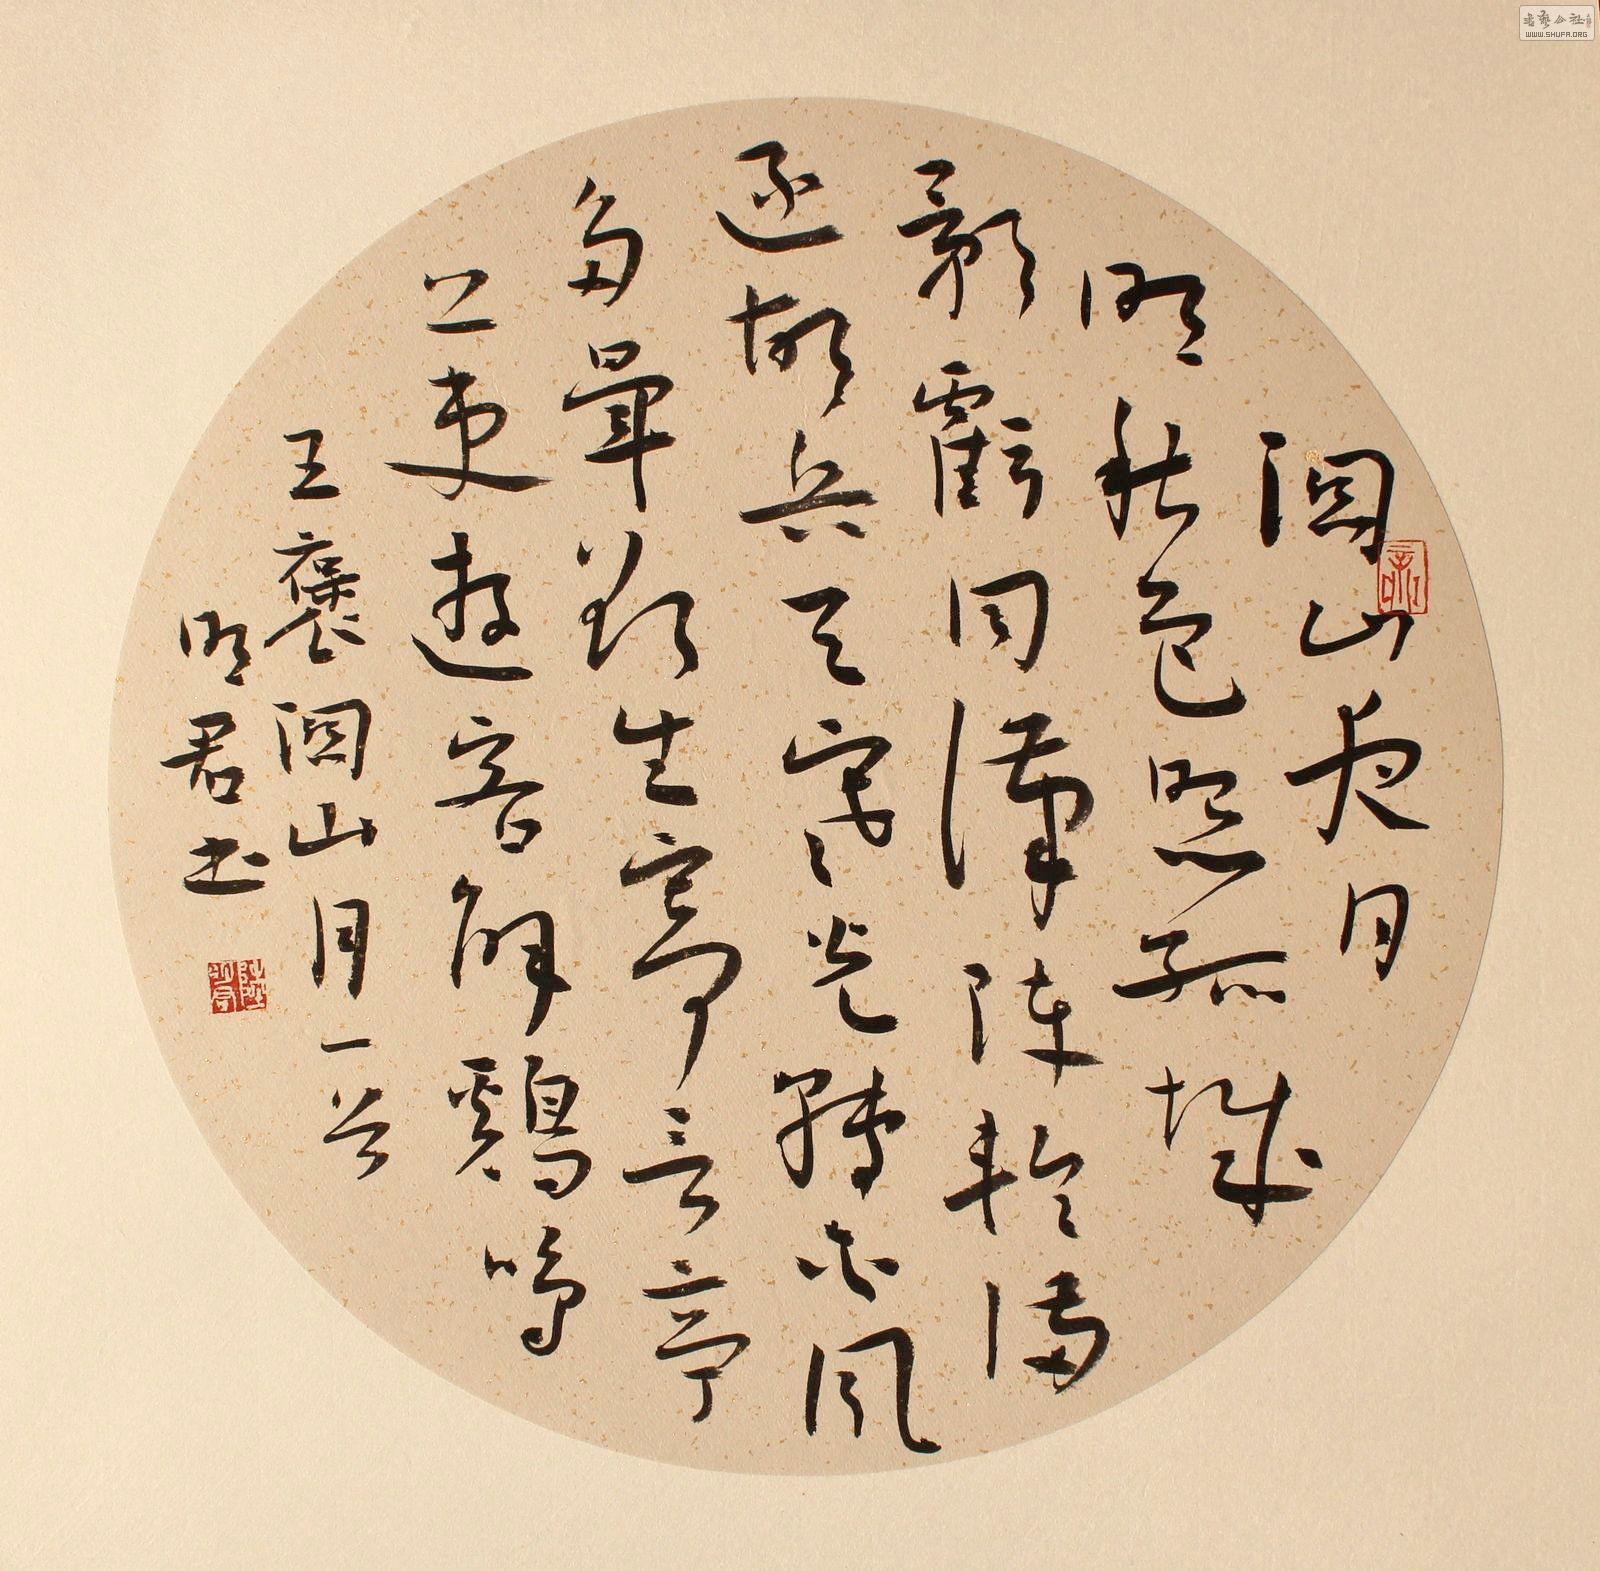 關山夜月
明秋色照孤城
影虧同漢陣輪滿
逐胡兵天寒光轉白風
多暈欲生寄言亭
上吏遊客解鷄鳴
王褒關山月一首
明君書
書藝公社
WWW.SHUFA.ORG